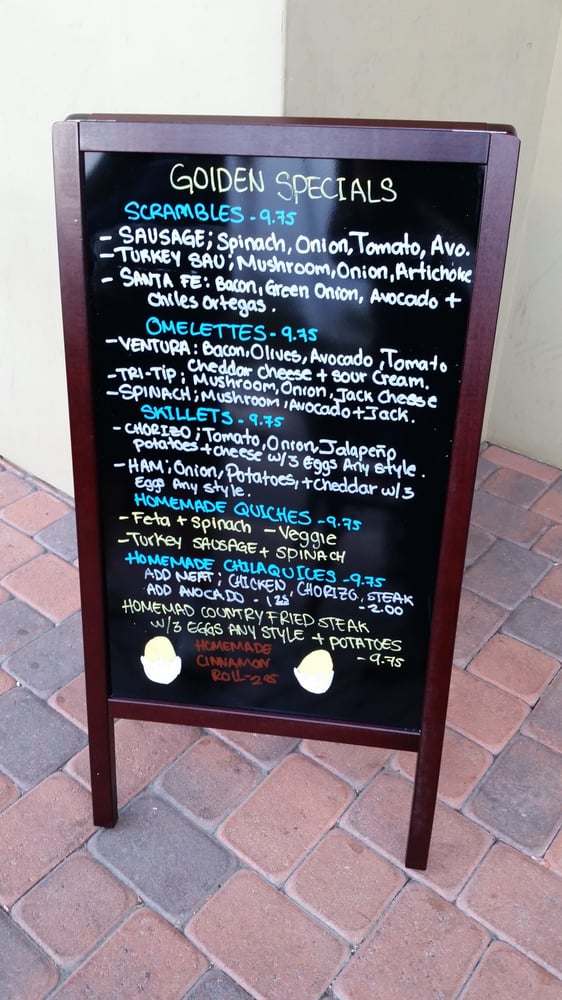 GOlDEN SPECIALS
SCRAMBLES - 9.75
- SAUSAGE; Spinach, Onion, Tomato, Avo.
- TURKEY SAU; Mushroom, Onion, Artichoke
- SANTA FE: Bacon, Green Onion, Avocado +
Chiles Ortegas.
OMELETTES - 9.75
- VENTURA: Bacon, Olives, Avocado, Tomato
Cheddar Cheese + Sour Cream.
- TRI-TIP; Mushroom, Onion, Jack Cheese
- SPINACH; Mushroom, Avocado + Jack.
SKILLETS - 9.75
- CHORIZO; Tomato, Onion, Jalapeño
potatoes + cheese w/3 Eggs Any Style.
- HAM; Onion, Potatoes, + Cheddar w/3
Eggs Any Style.
HOMEMADE QUICHES - 9.75
- Feta + Spinach - Veggie
- Turkey SAUSAGE + SPINACH
HOMEMADE CHILAQUILES - 9.75
ADD MEAT; CHICKEN, CHORIZO, STEAK
ADD AVOCADO - 1.25 - 2.00
HOMEMAD COUNTRY FRIED STEAK
W/3 EGGS ANY STYLE + POTATOES
- 9.75
HOMEMADE
CINNAMON
ROLL - 2.95